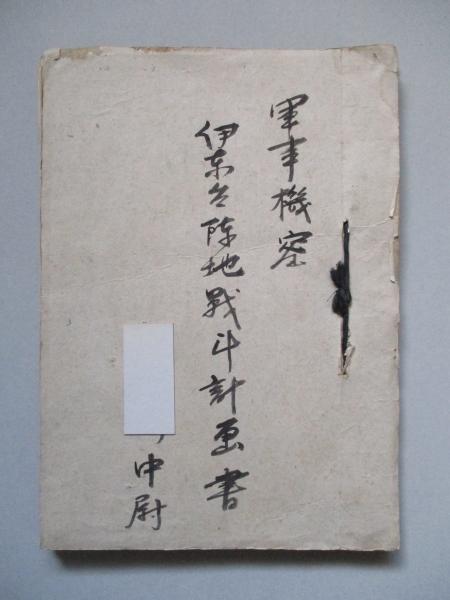 軍事機密
伊東陣地戦斗計画書
中尉